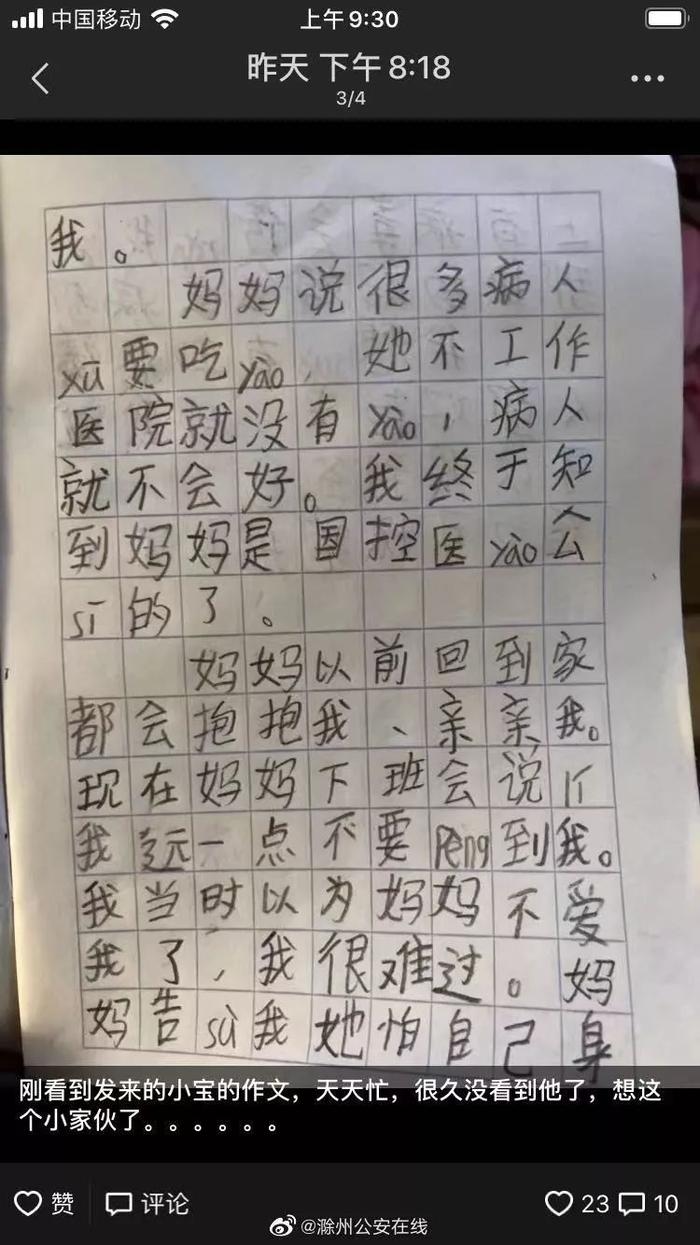 中国移动 上午9:30
昨天 下午8:18
3/4
我。
妈妈说很多病人
xū要吃yào, 她不工作
医院就没有yào,病人
就不会好。我终于知
到妈妈是国控医yào公
sī的了。
妈妈以前回到家
都会抱抱我、亲亲我。
现在妈妈下班会说
我远一点不要Pèng到我。
我当时以为妈妈不爱
我了,我很难过。妈
妈告sù我她怕自己身
刚看到发来的小宝的作文,天天忙,很久没看到他了,想这
个小家伙了。。。。。。
赞 评论 23 10
@滁州公安在线